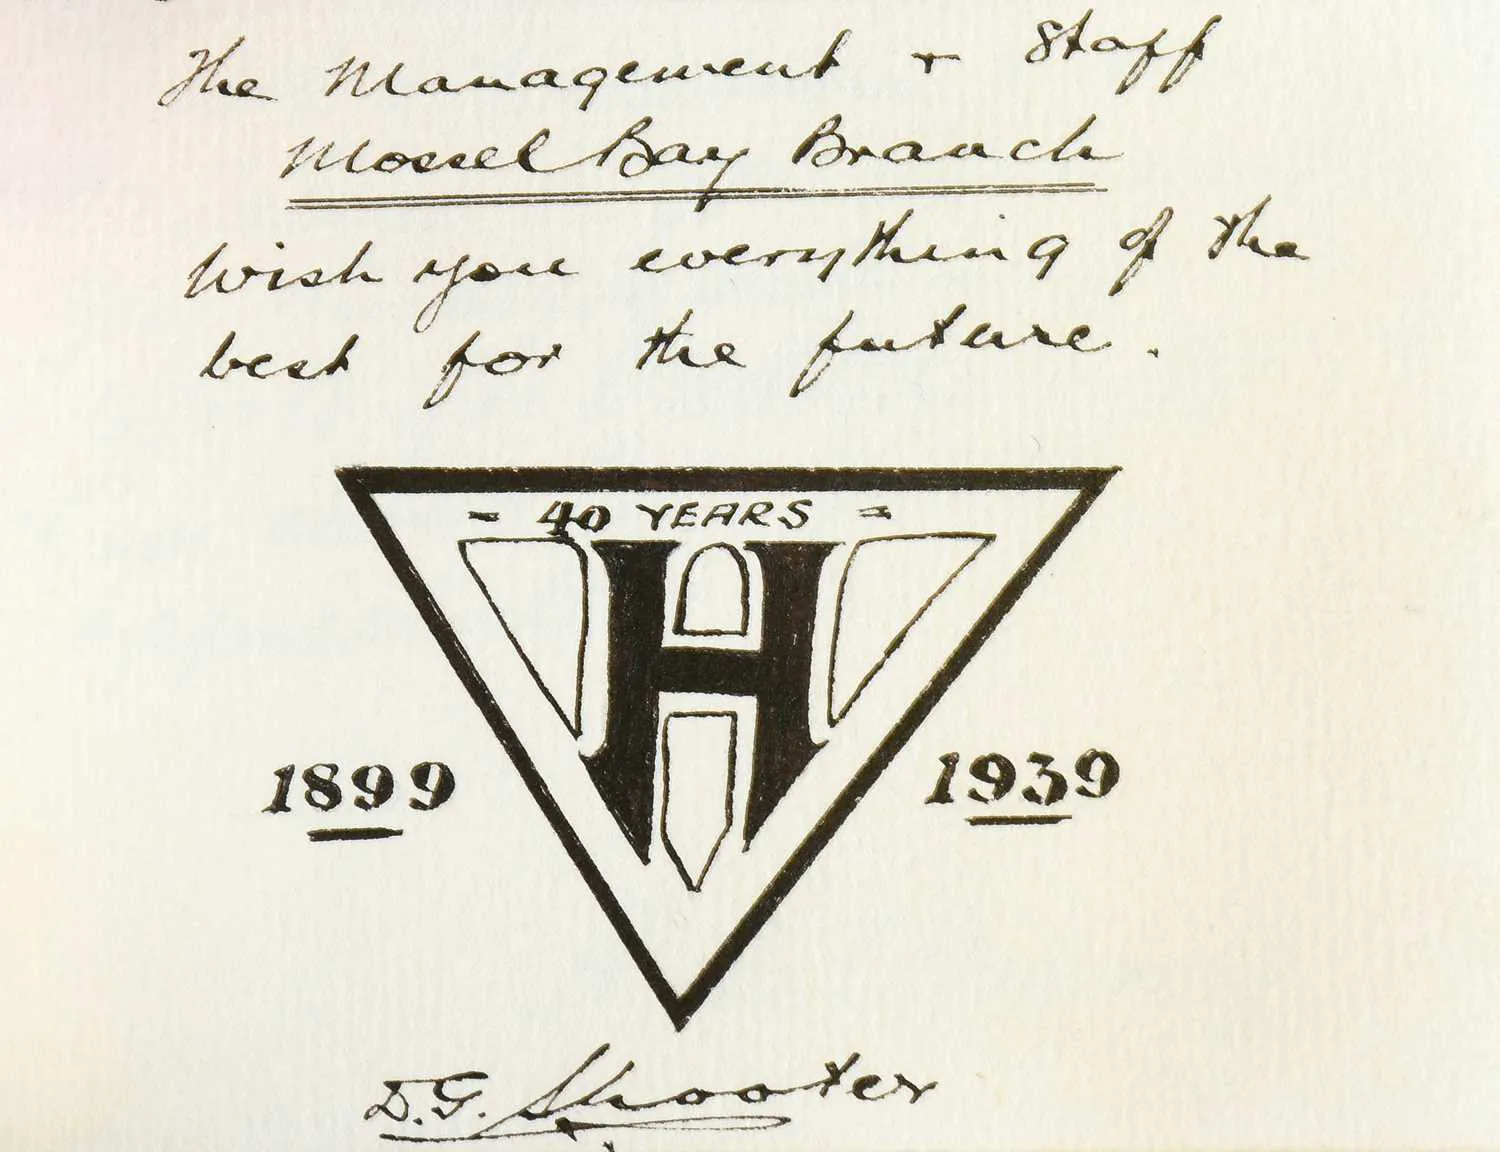 The Management & Staff
Mossel Bay Branch
Wish you everything of the
best for the future.
- 40 YEARS =
H
1899 1939
D.G. Shooter